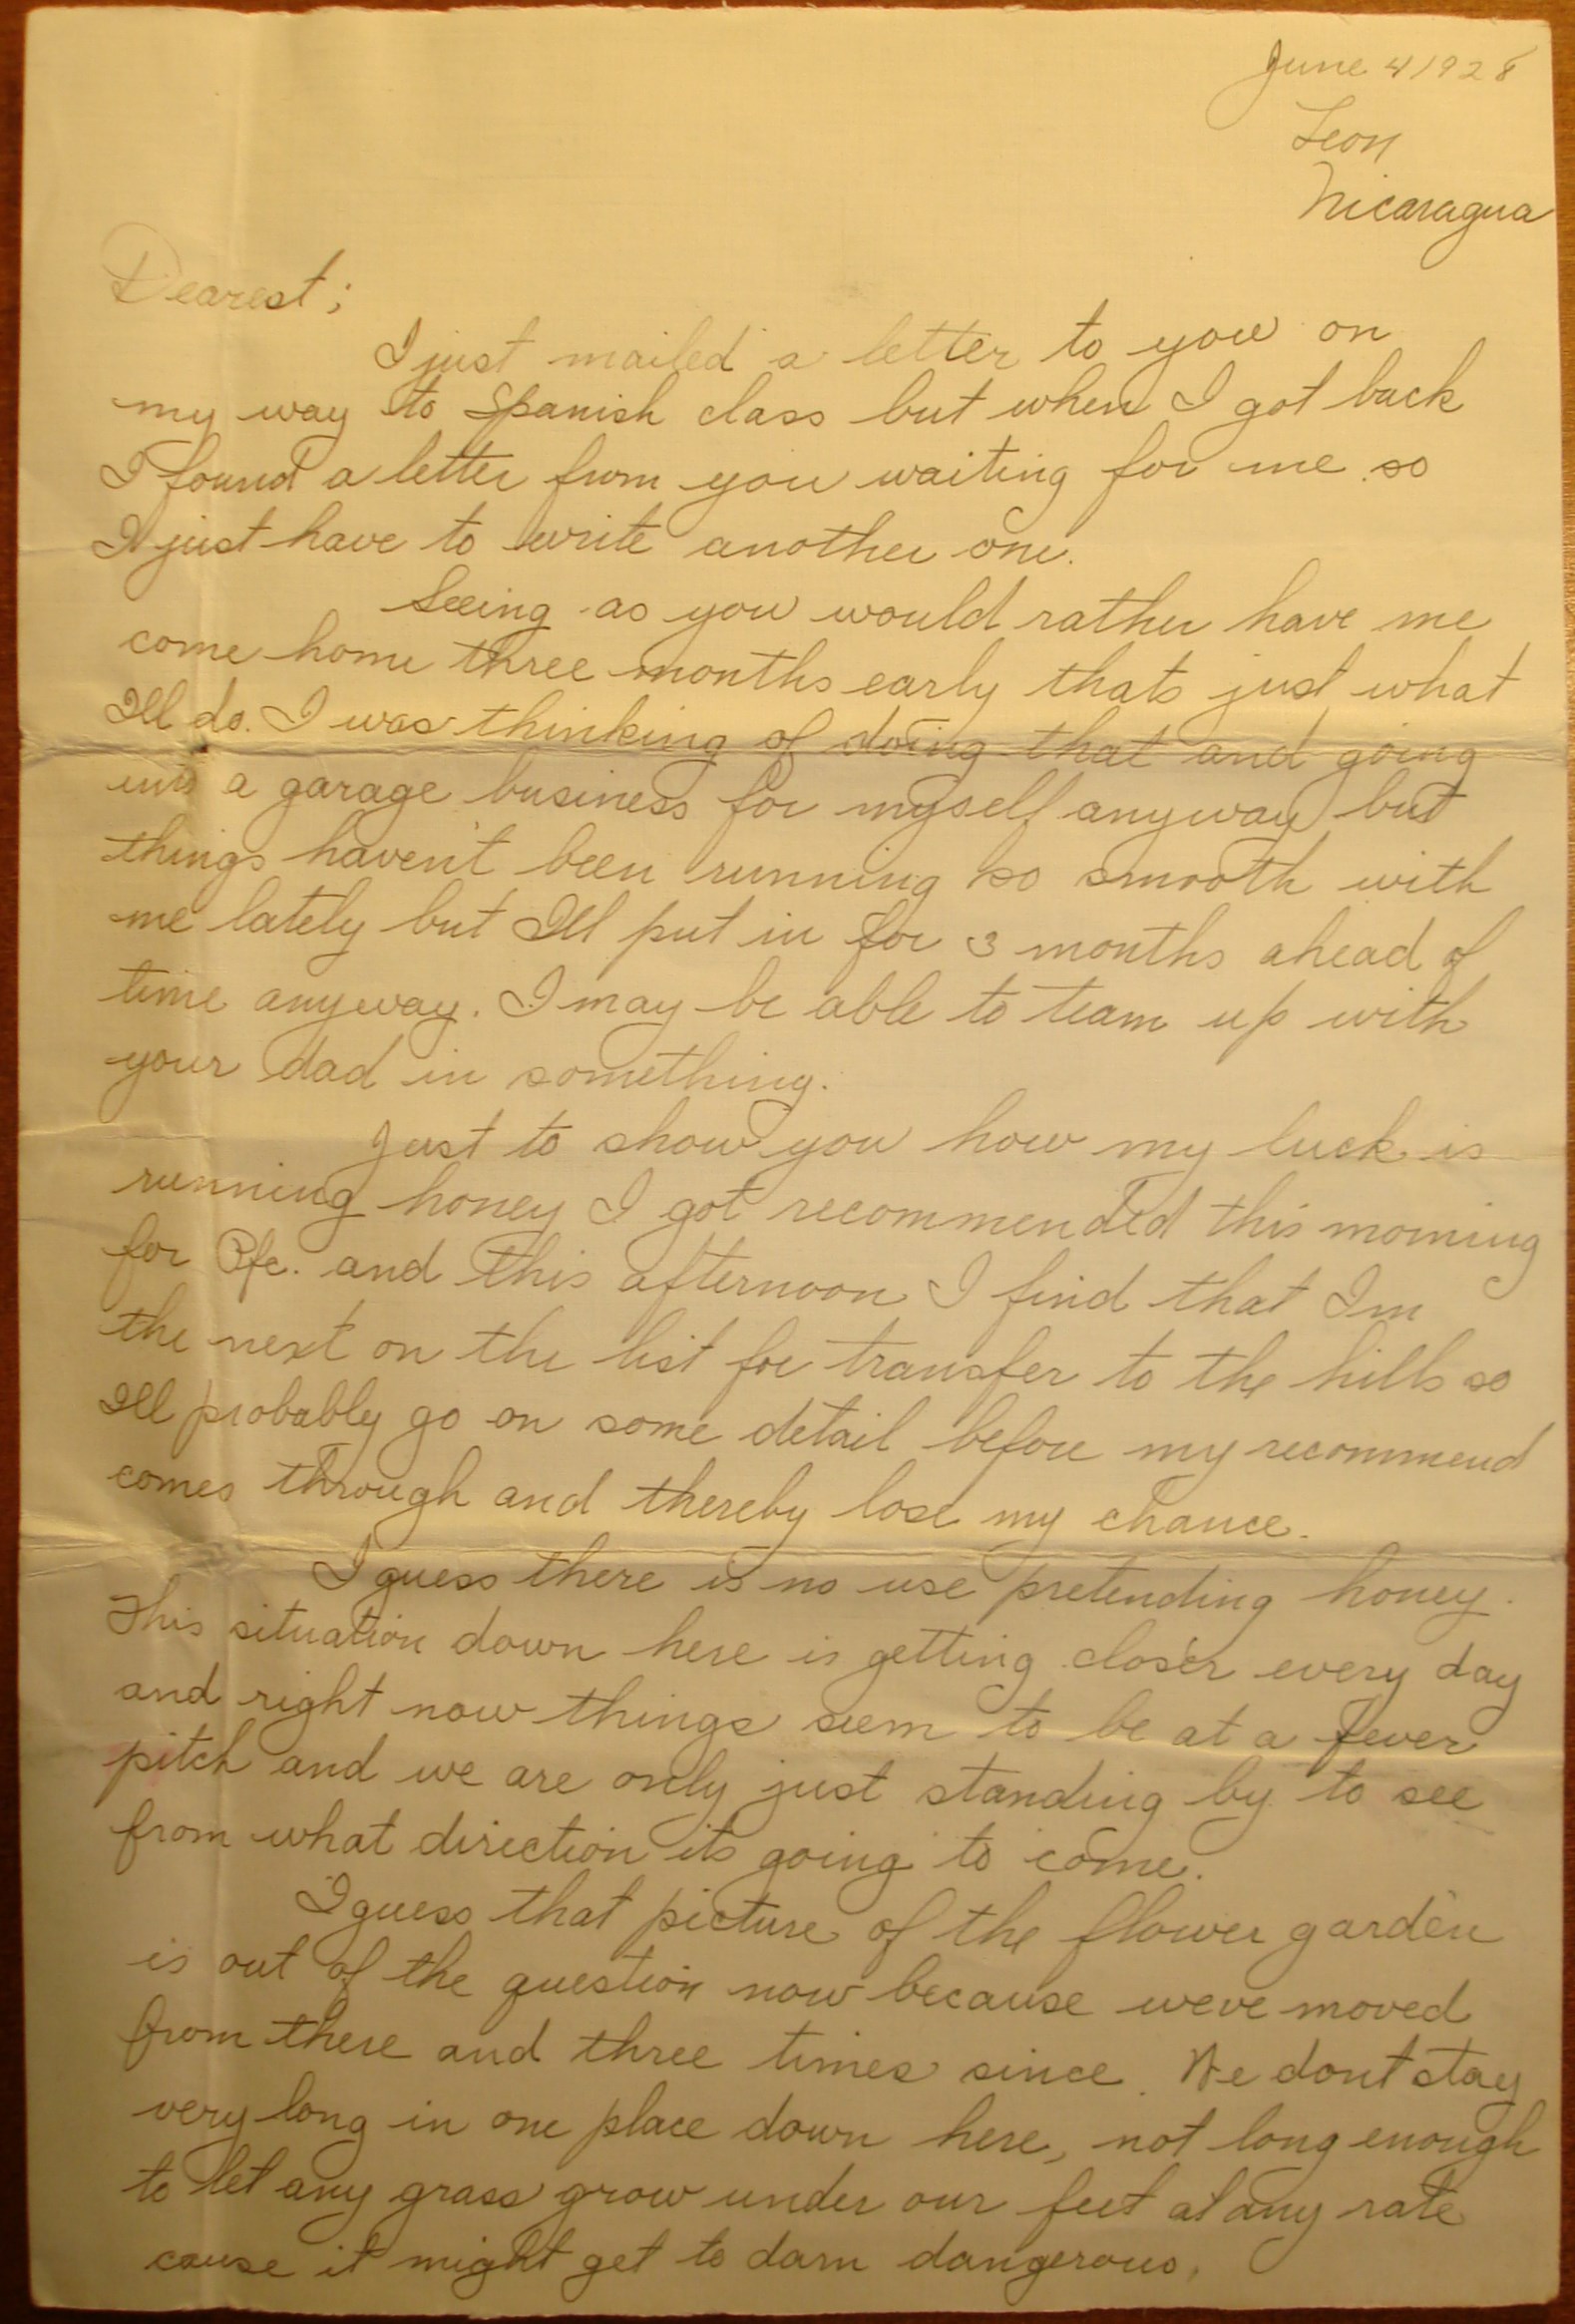 June 4 1928
Leon
Nicaragua
Dearest;
I just mailed a letter to you on
my way to Spanish class but when I got back
I found a letter from you waiting for me so
I just have to write another one.
Seeing as you would rather have me
come home three months early thats just what
Ill do. I was thinking of doing that and going
into a garage business for myself anyway but
things haven't been running so smooth with
me lately but Ill put in for 3 months ahead of
time anyway. I may be able to team up with
your dad in something.
Just to show you how my luck is
running honey I got recommended this morning
for Pfc. and this afternoon I find that Im
the next on the list for transfer to the hills so
Ill probably go on some detail before my recommend
comes through and thereby lose my chance.
I guess there is no use pretending honey.
This situation down here is getting closer every day
and right now things seem to be at a fever
pitch and we are only just standing by to see
from what direction its going to come.
I guess that picture of the flower garden
is out of the question now because weve moved
from there and three times since. We dont stay
very long in one place down here, not long enough
to let any grass grow under our feet at any rate
cause it might get to darn dangerous.